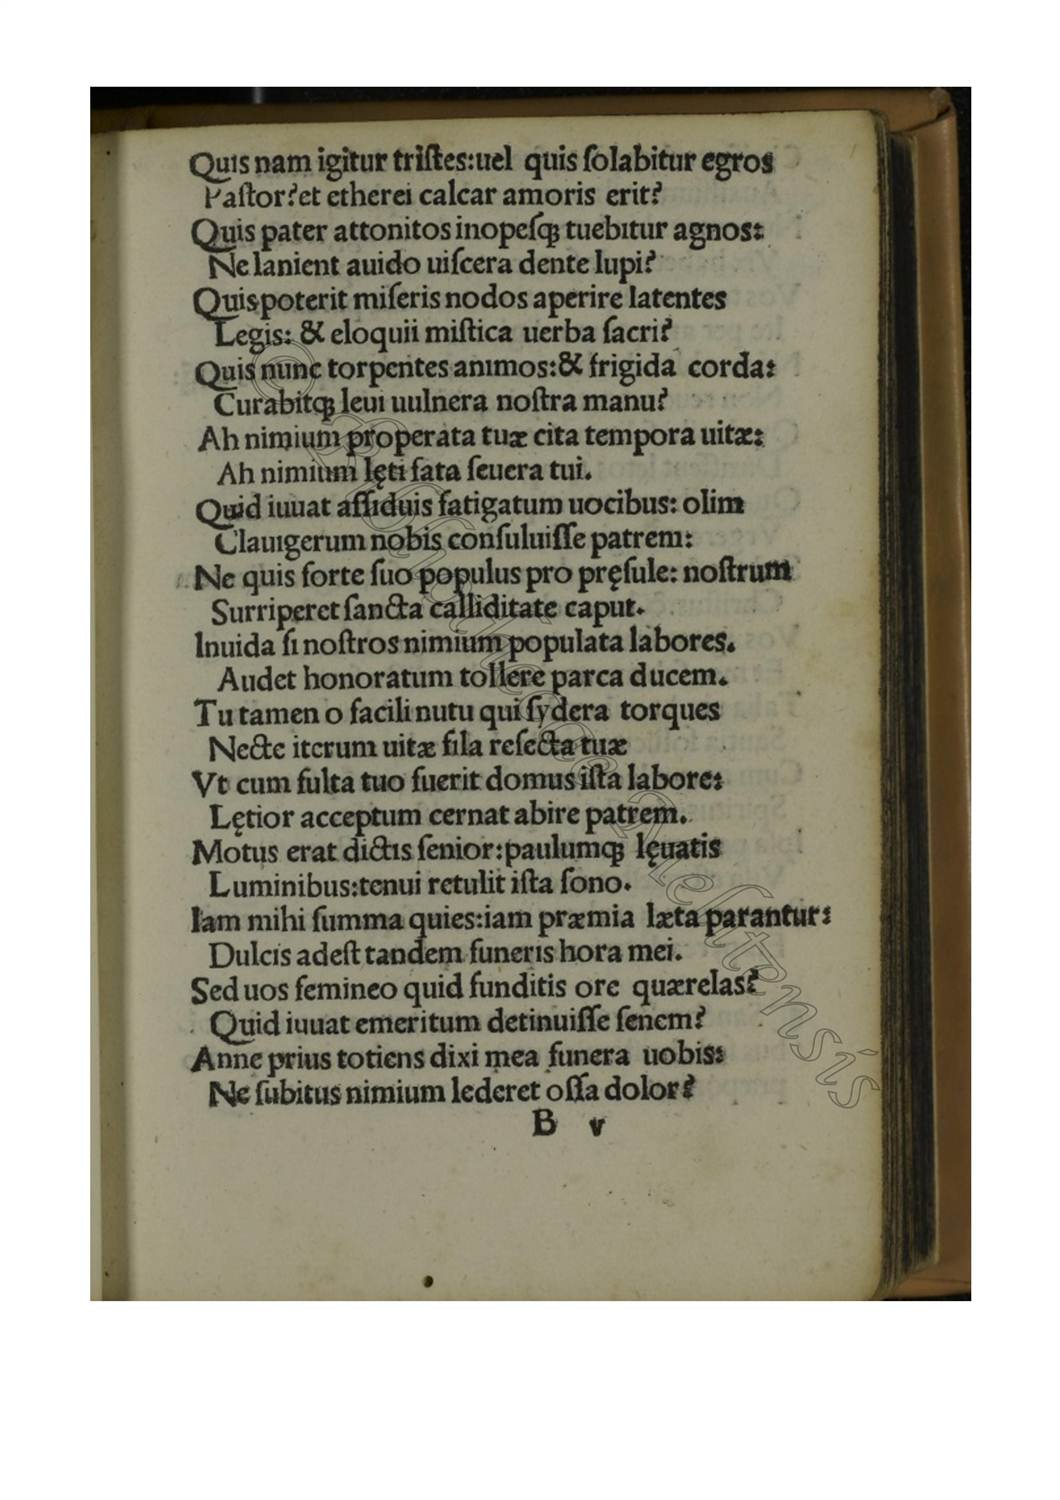 Quis nam igitur triſtes:uel quis ſolabitur egros
Paſtor?et etherei calcar amoris erit?
Quis pater attonitos inopeſqꝫ tuebitur agnos:
Ne lanient auido uiſcera dente lupi?
Quis poterit miſeris nodos aperire latentes
Legis: & eloquii miſtica uerba ſacri?
Quis nunc torpentes animos:& frigida corda:
Curabitqꝫ leui uulnera noſtra manu?
Ah nimium properata tuæ cita tempora uitæ:
Ah nimium lęti fata ſeuera tui.
Quid iuuat aſſiduis fatigatum uocibus: olim
Clauigerum nobis conſuluiſſe patrem:
Ne quis forte ſuo populus pro pręſule: noſtrum
Surriperet ſancta calliditate caput.
Inuida ſi noſtros nimium populata labores.
Audet honoratum tollere parca ducem.
Tu tamen o facili nutu qui ſydera torques
Necte iterum uitæ fila reſecta tuæ
Vt cum fulta tuo fuerit domus iſta labore:
Lętior acceptum cernat abire patrem.
Motus erat dictis ſenior:paulumqꝫ lęuatis
Luminibus:tenui retulit iſta ſono.
Iam mihi ſumma quies:iam præmia læta parantur:
Dulcis adeſt tandem funeris hora mei.
Sed uos femineo quid funditis ore quærelas?
Quid iuuat emeritum detinuiſſe ſenem?
Anne prius totiens dixi mea funera uobis:
Ne ſubitus nimium lederet oſſa dolor?
B v